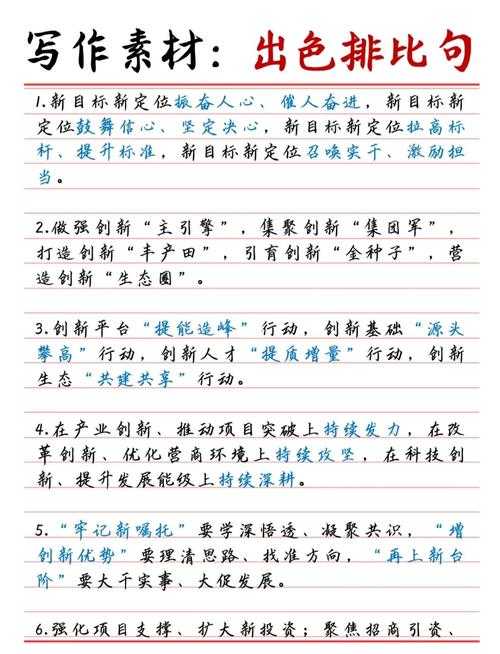 写作素材：出色排比句
1.新目标新定位振奋人心、催人奋进，新目标新
定位鼓舞信心、坚定决心，新目标新定位拉高标
杆、提升标准，新目标新定位召唤实干、激励担
当。
2.做强创新“主引擎”，集聚创新“集团军”，
打造创新“丰产田”，引育创新“金种子”，营
造创新“生态圈”。
3.创新平台“提能造峰”行动，创新基础“源头
攀高”行动，创新人才“提质增量”行动，创新
生态“共建共享”行动。
4.在产业创新、推动项目突破上持续发力，在改
革创新、优化营商环境上持续攻坚，在科技创
新、提升发展能级上持续深耕。
5.“牢记新嘱托”要学深悟透、凝聚共识，“增
创新优势”要理清思路、找准方向，“再上新台
阶”要大干实事、大促发展。
6.强化项目支撑、扩大新投资；聚焦招商引资、